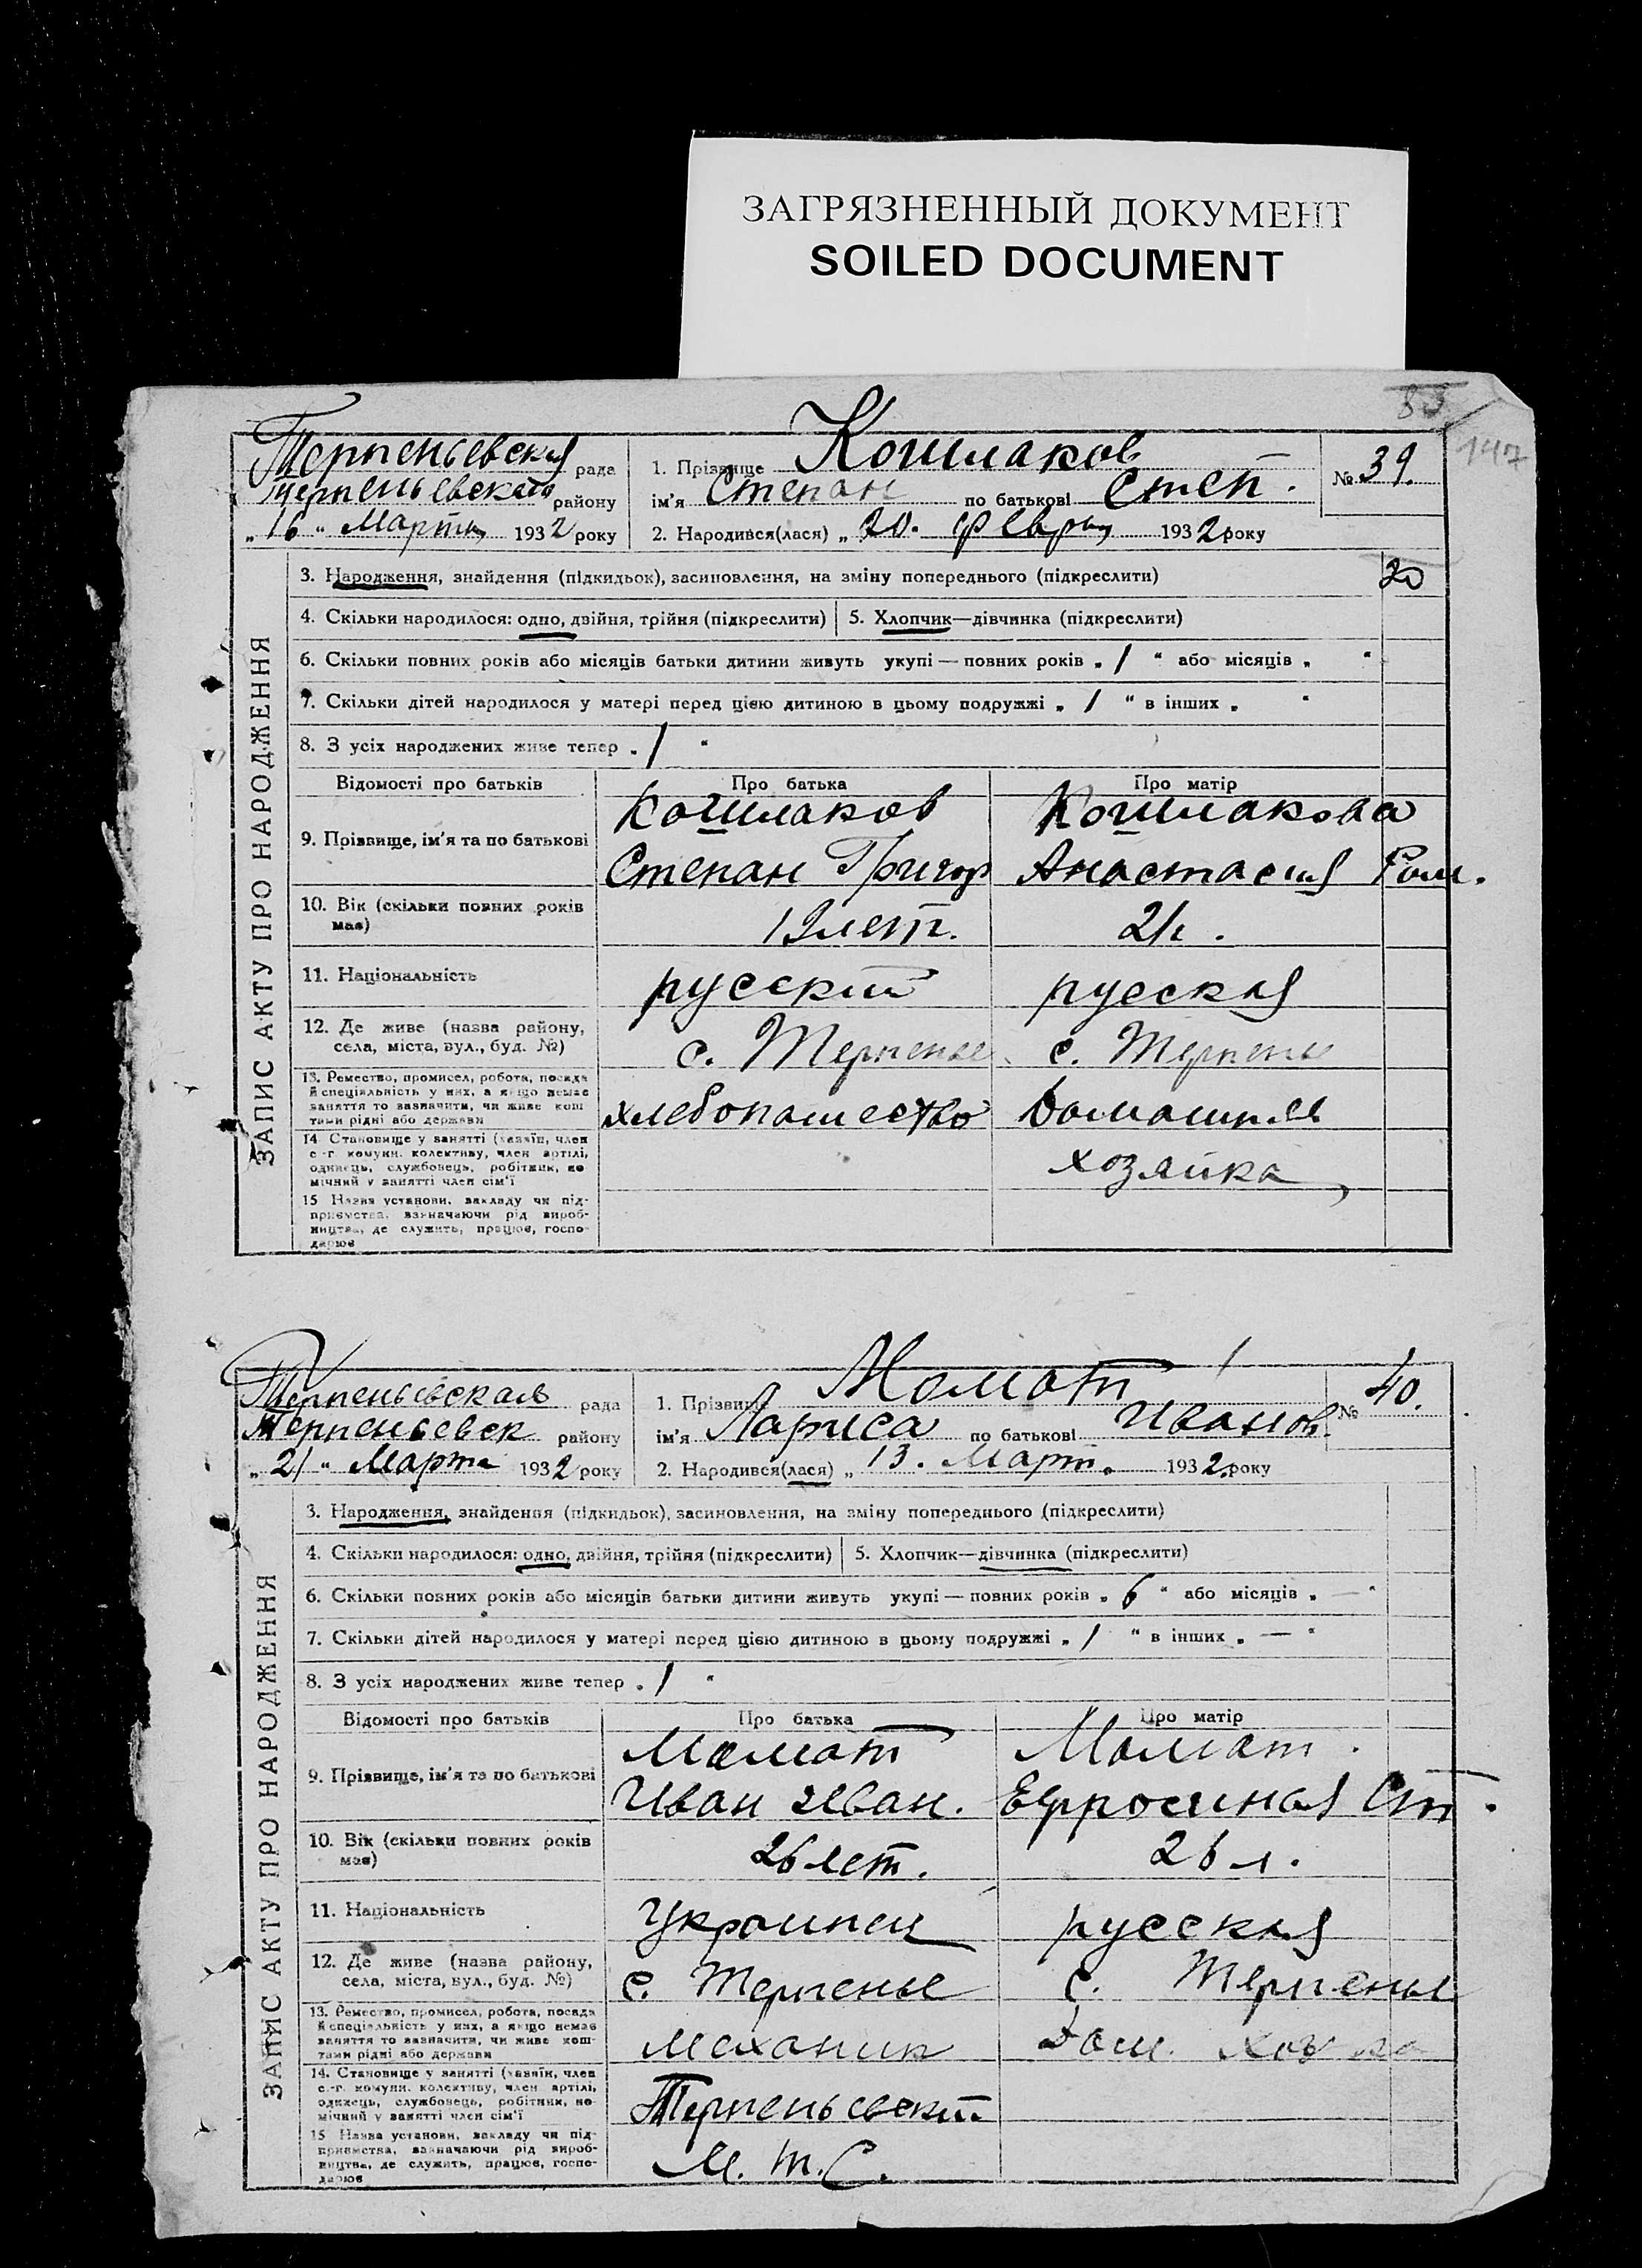 ЗАГРЯЗНЕННЫЙ ДОКУМЕНТ
SOILED DOCUMENT
83
147
Терпеньевская рада
Терпеньевского району
„ 16 “ Марта 1932 року
1. Прізвище Кошлаков
ім'я Степан по батькові Степ.
№ 39.
2. Народився(лася) „ 20. Февраля 1932 року
ЗАПИС АКТУ ПРО НАРОДЖЕННЯ
3. Народження, знайдення (підкидьок), засиновлення, на зміну попереднього (підкреслити)
4. Скільки народилося: одно, двійня, трійня (підкреслити) 5. Хлопчик—дівчинка (підкреслити)
6. Скільки повних років або місяців батьки дитини живуть укупі — повних років „ 1 “ або місяців „ “
7. Скільки дітей народилося у матері перед цією дитиною в цьому подружжі „ 1 “ в інших „ “
8. З усіх народжених живе тепер „ 1 “
Відомості про батьків Про батька Про матір
9. Прізвище, ім'я та по батькові
Кошлаков Кошлакова
Степан Григор Анастасия Ром.
10. Вік (скільки повних років має) лет. 21
11. Національність русский русская
12. Де живе (назва району, села, міста, вул., буд. №) с. Терпенье с. Терпенье
13. Ремество, промисел, робота, посада й спеціяльність у них, а якщо немає заняття то зазначити, чи живе коштами рідні або держави
хлебопашество Домашняя
14. Становище у занятті (хазяїн, член с.-г. комуни, колективу, член артілі, одинець, службовець, робітник, помічний у занятті член сім'ї
хозяйка
15 Назва установи, закладу чи підприємства, зазначаючи рід виробництва, де служить, працює, господарює
Терпеньевская рада
Терпеньевск району
„ 21 “ Марта 1932 року
1. Прізвище Момот
ім'я Лариса по батькові Иванов.
№ 40.
2. Народився(лася) „ 13. Март. 1932. року
ЗАПИС АКТУ ПРО НАРОДЖЕННЯ
3. Народження, знайдення (підкидьок), засиновлення, на зміну попереднього (підкреслити)
4. Скільки народилося: одно, двійня, трійня (підкреслити) 5. Хлопчик—дівчинка (підкреслити)
6. Скільки повних років або місяців батьки дитини живуть укупі — повних років „ 6 “ або місяців „ — “
7. Скільки дітей народилося у матері перед цією дитиною в цьому подружжі „ 1 “ в інших „ — “
8. З усіх народжених живе тепер „ 1 “
Відомості про батьків Про батька Про матір
9. Прізвище, ім'я та по батькові
Момот Момот.
Иван Иван. Ефросиния Ст.
10. Вік (скільки повних років має) 26 лет. 26 л.
11. Національність Украинец русская
12. Де живе (назва району, села, міста, вул., буд. №) с. Терпенье с. Терпенье
13. Ремество, промисел, робота, посада й спеціяльність у них, а якщо немає заняття то зазначити, чи живе коштами рідні або держави
механик Дом. хоз-ка
14. Становище у занятті (хазяїн, член с.-г. комуни, колективу, член артілі, одинець, службовець, робітник, помічний у занятті член сім'ї
Терпеньевский
15 Назва установи, закладу чи підприємства, зазначаючи рід виробництва, де служить, працює, господарює
М. Т. С.